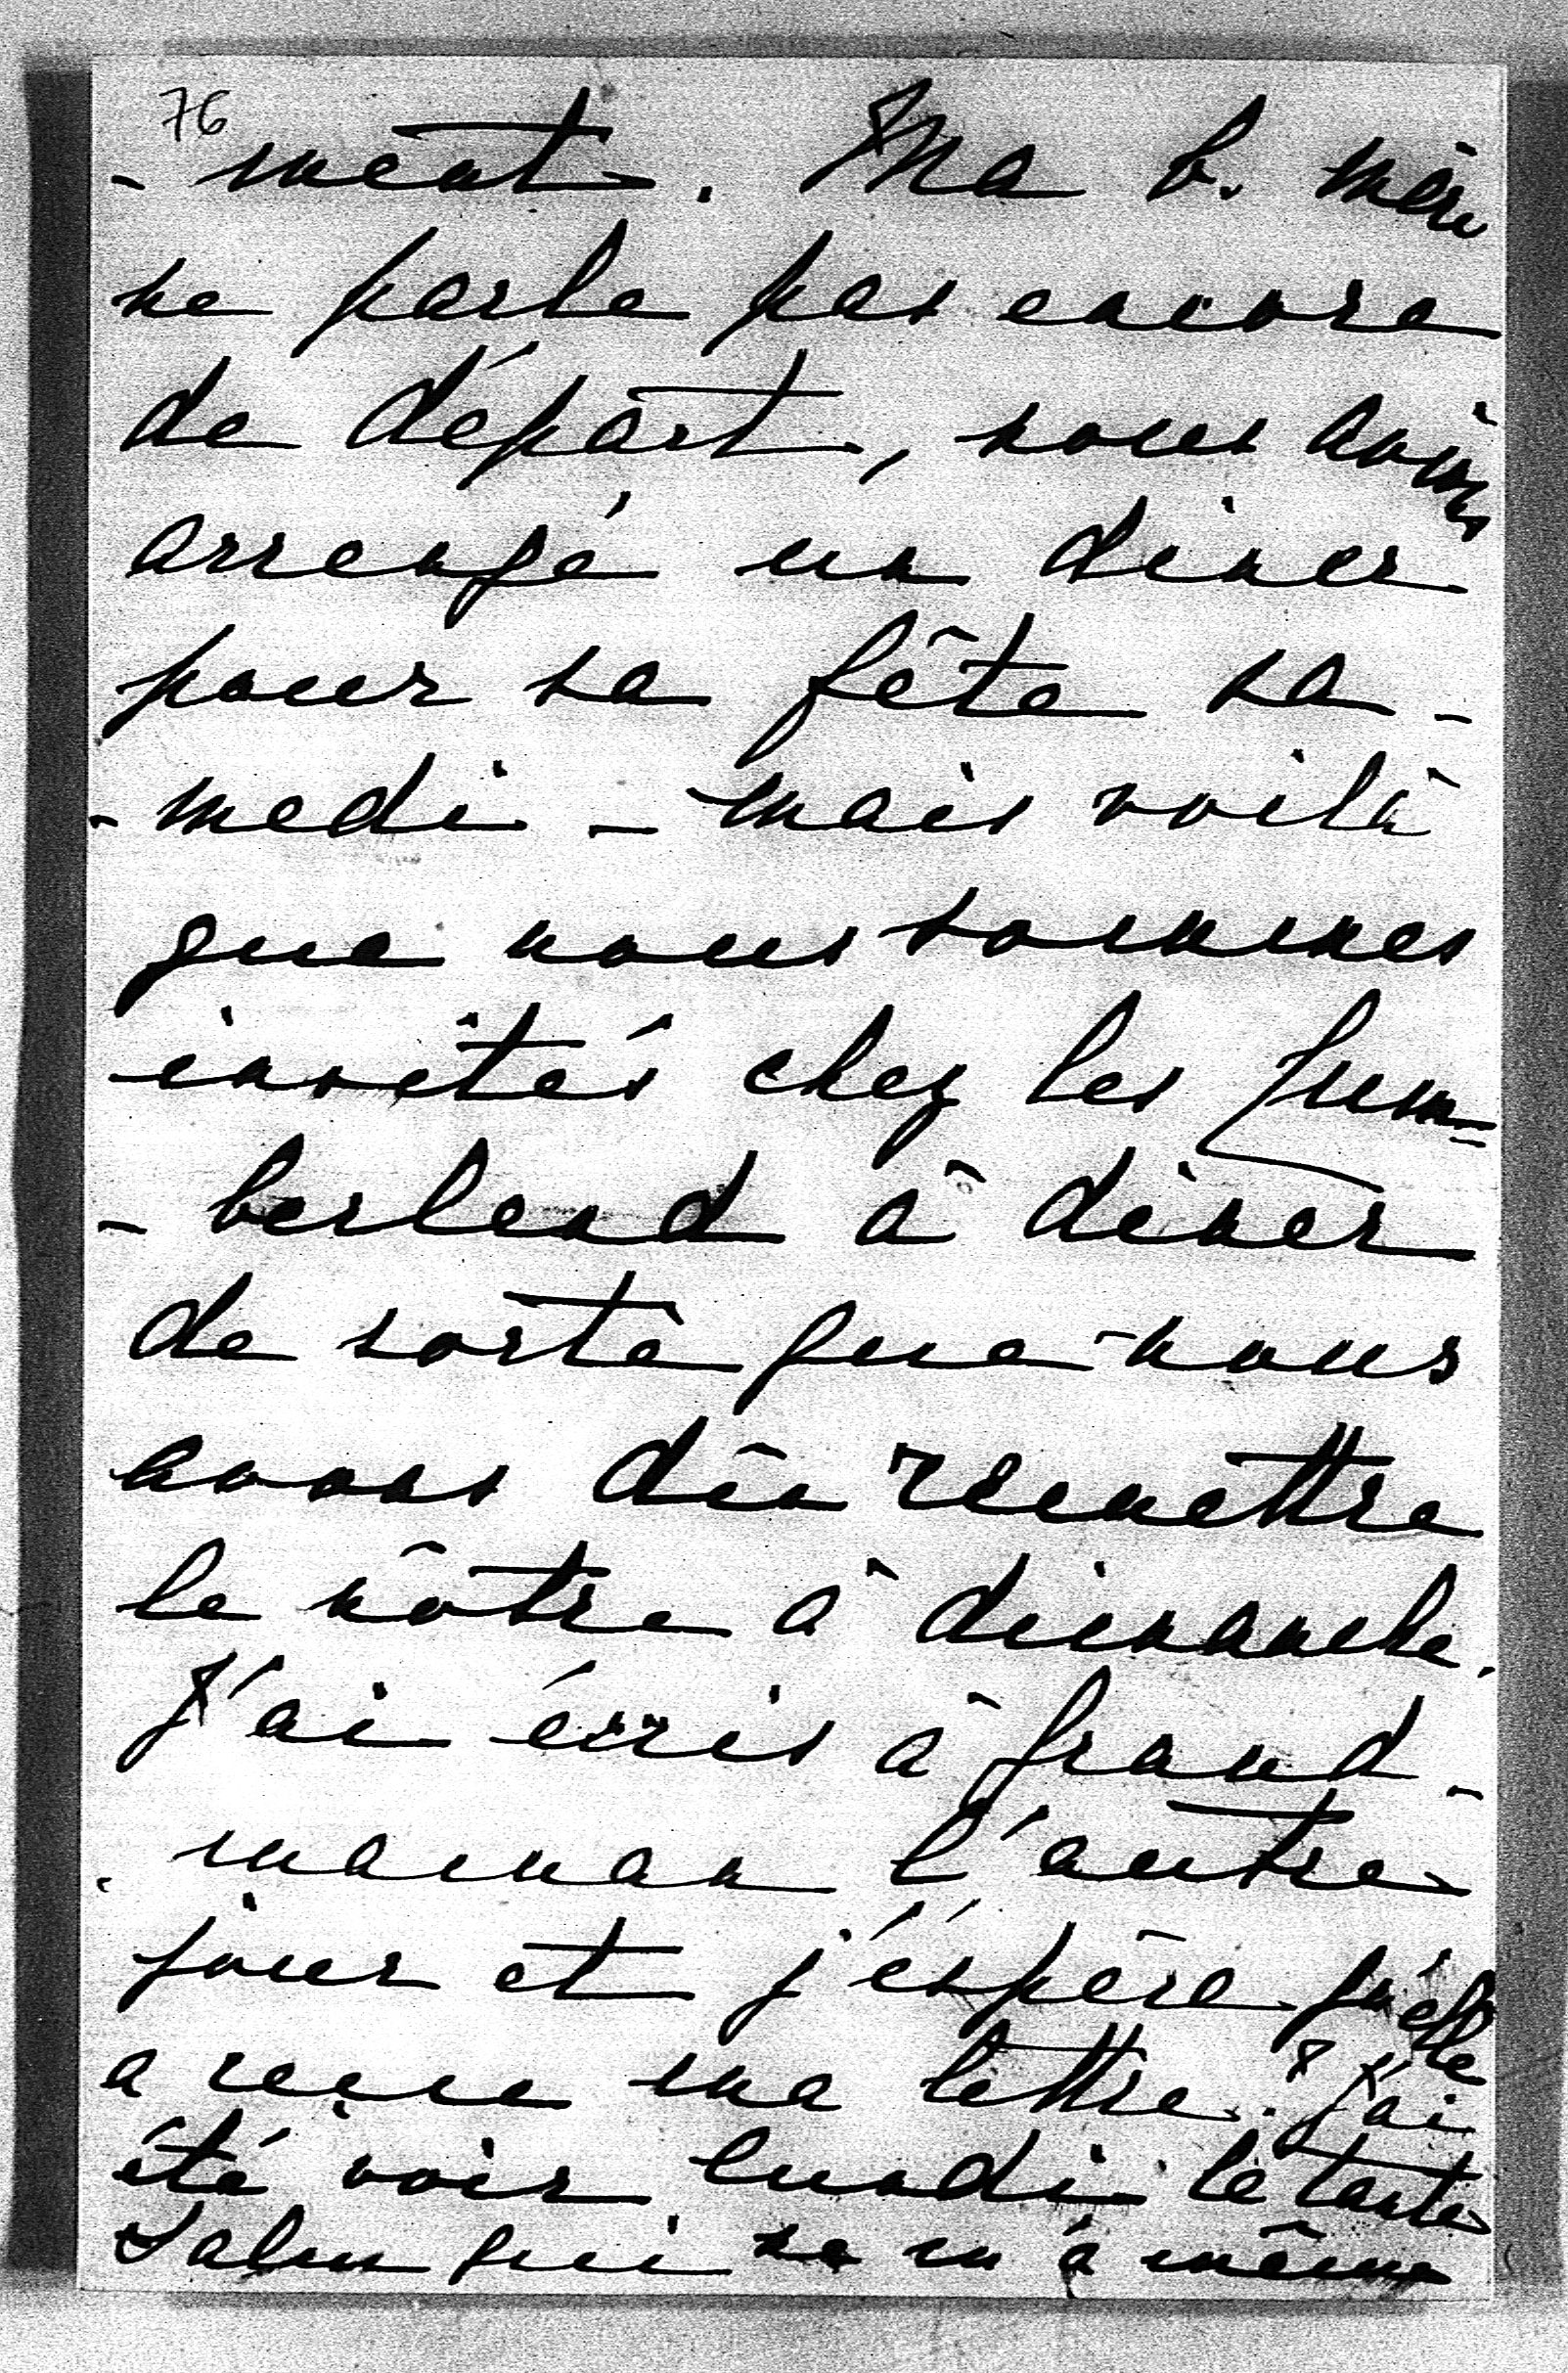 76
- ment. Ma b. mère
ne parle pas encore
de départ, nous avions
arrangé un diner
pour sa fête sa-
- medi - mais voilà
que nous sommes
invités chez les Cum-
- berland à diner
de sorte que nous
avons dû remettre
le nôtre à dimanche.
J'ai écris à grand-
maman l'autre
jour et j'éspère qu'elle
a reçue ma lettre. J'ai
été voir lundi la tante
Salm qui ne m'a même